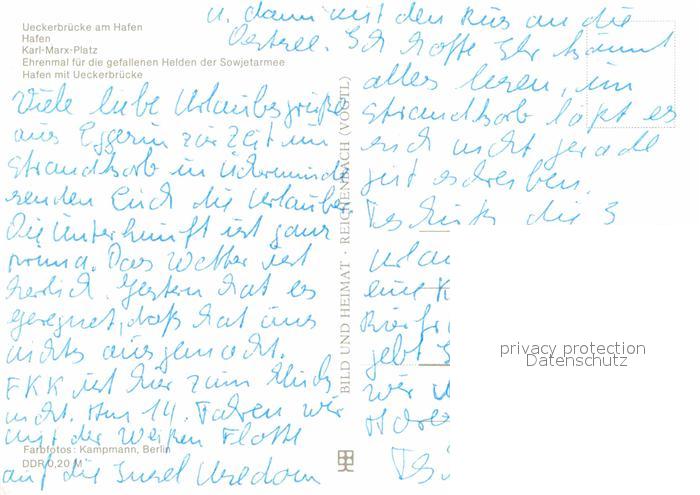 Ueckerbrücke am Hafen
Hafen
Karl-Marx-Platz
Ehrenmal für die gefallenen Helden der Sowjetarmee
Hafen mit Ueckerbrücke
Viele liebe Urlaubsgrüße
aus Eggesin zur Zeit im
Strandkorb in Ückermünde
senden Euch die Urlauber.
Die Unterkunft ist ganz
prima. Das Wetter ist
herlich. Gestern hat es
geregnet, daß hat uns
nichts ausgemacht.
FKK ist hier zum Glück
nicht. Am 14. Fahren wir
mit der Weißen Flotte
auf die Insel Usedom
u. dann mit den Bus an die
Ostsee. Ich hoffe Ihr könnt
alles lesen, im
Strandkorb läßt es
sich nicht gerade
gut schreiben.
Tschüß die 3
Farbfotos: Kampmann, Berlin
DDR 0,20 M
BILD UND HEIMAT · REICHENBACH (VOGTL)
wir
privacy protection
Datenschutz